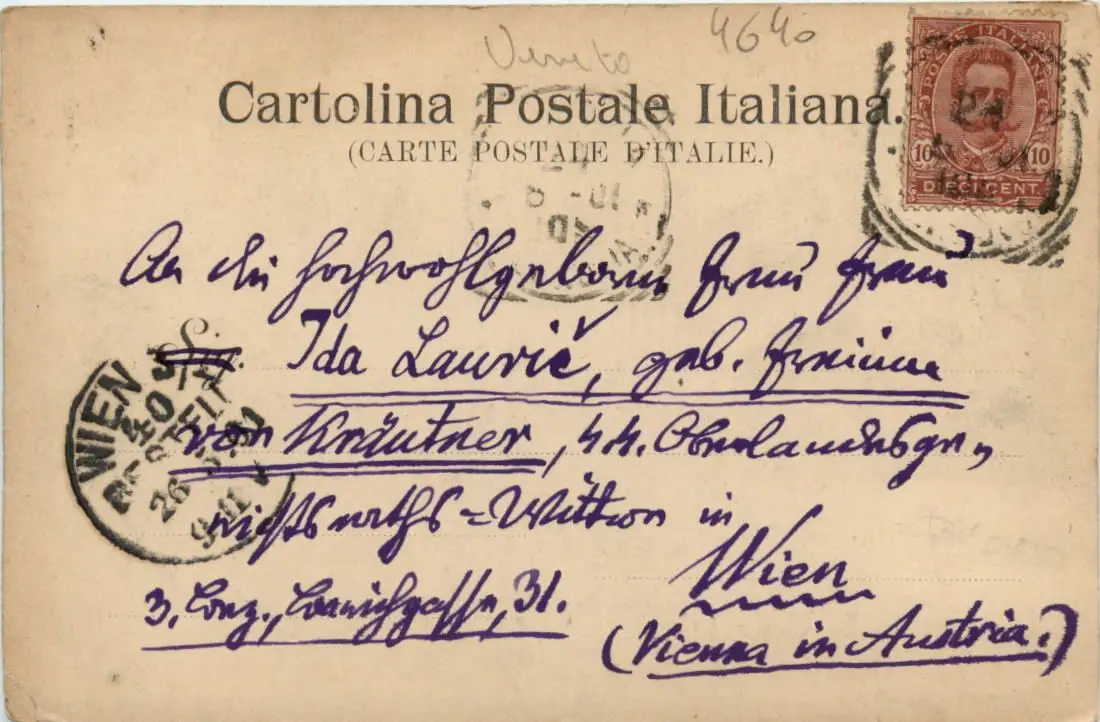 Veneto 4640
Cartolina Postale Italiana.
(CARTE POSTALE D'ITALIE.)
POSTE ITALIANE
10 10
DIECI CENT.
24
8 - 01
An die hochwohlgeborne Frau Frau
Ida Laurič, geb. Freiinn
von Kräutner, k.k. Oberlandesge-
richtsraths-Wittwe in
Wien
3. Bez., 31.
(Vienna in Austria.)
WIEN
40
BESTELLT
26